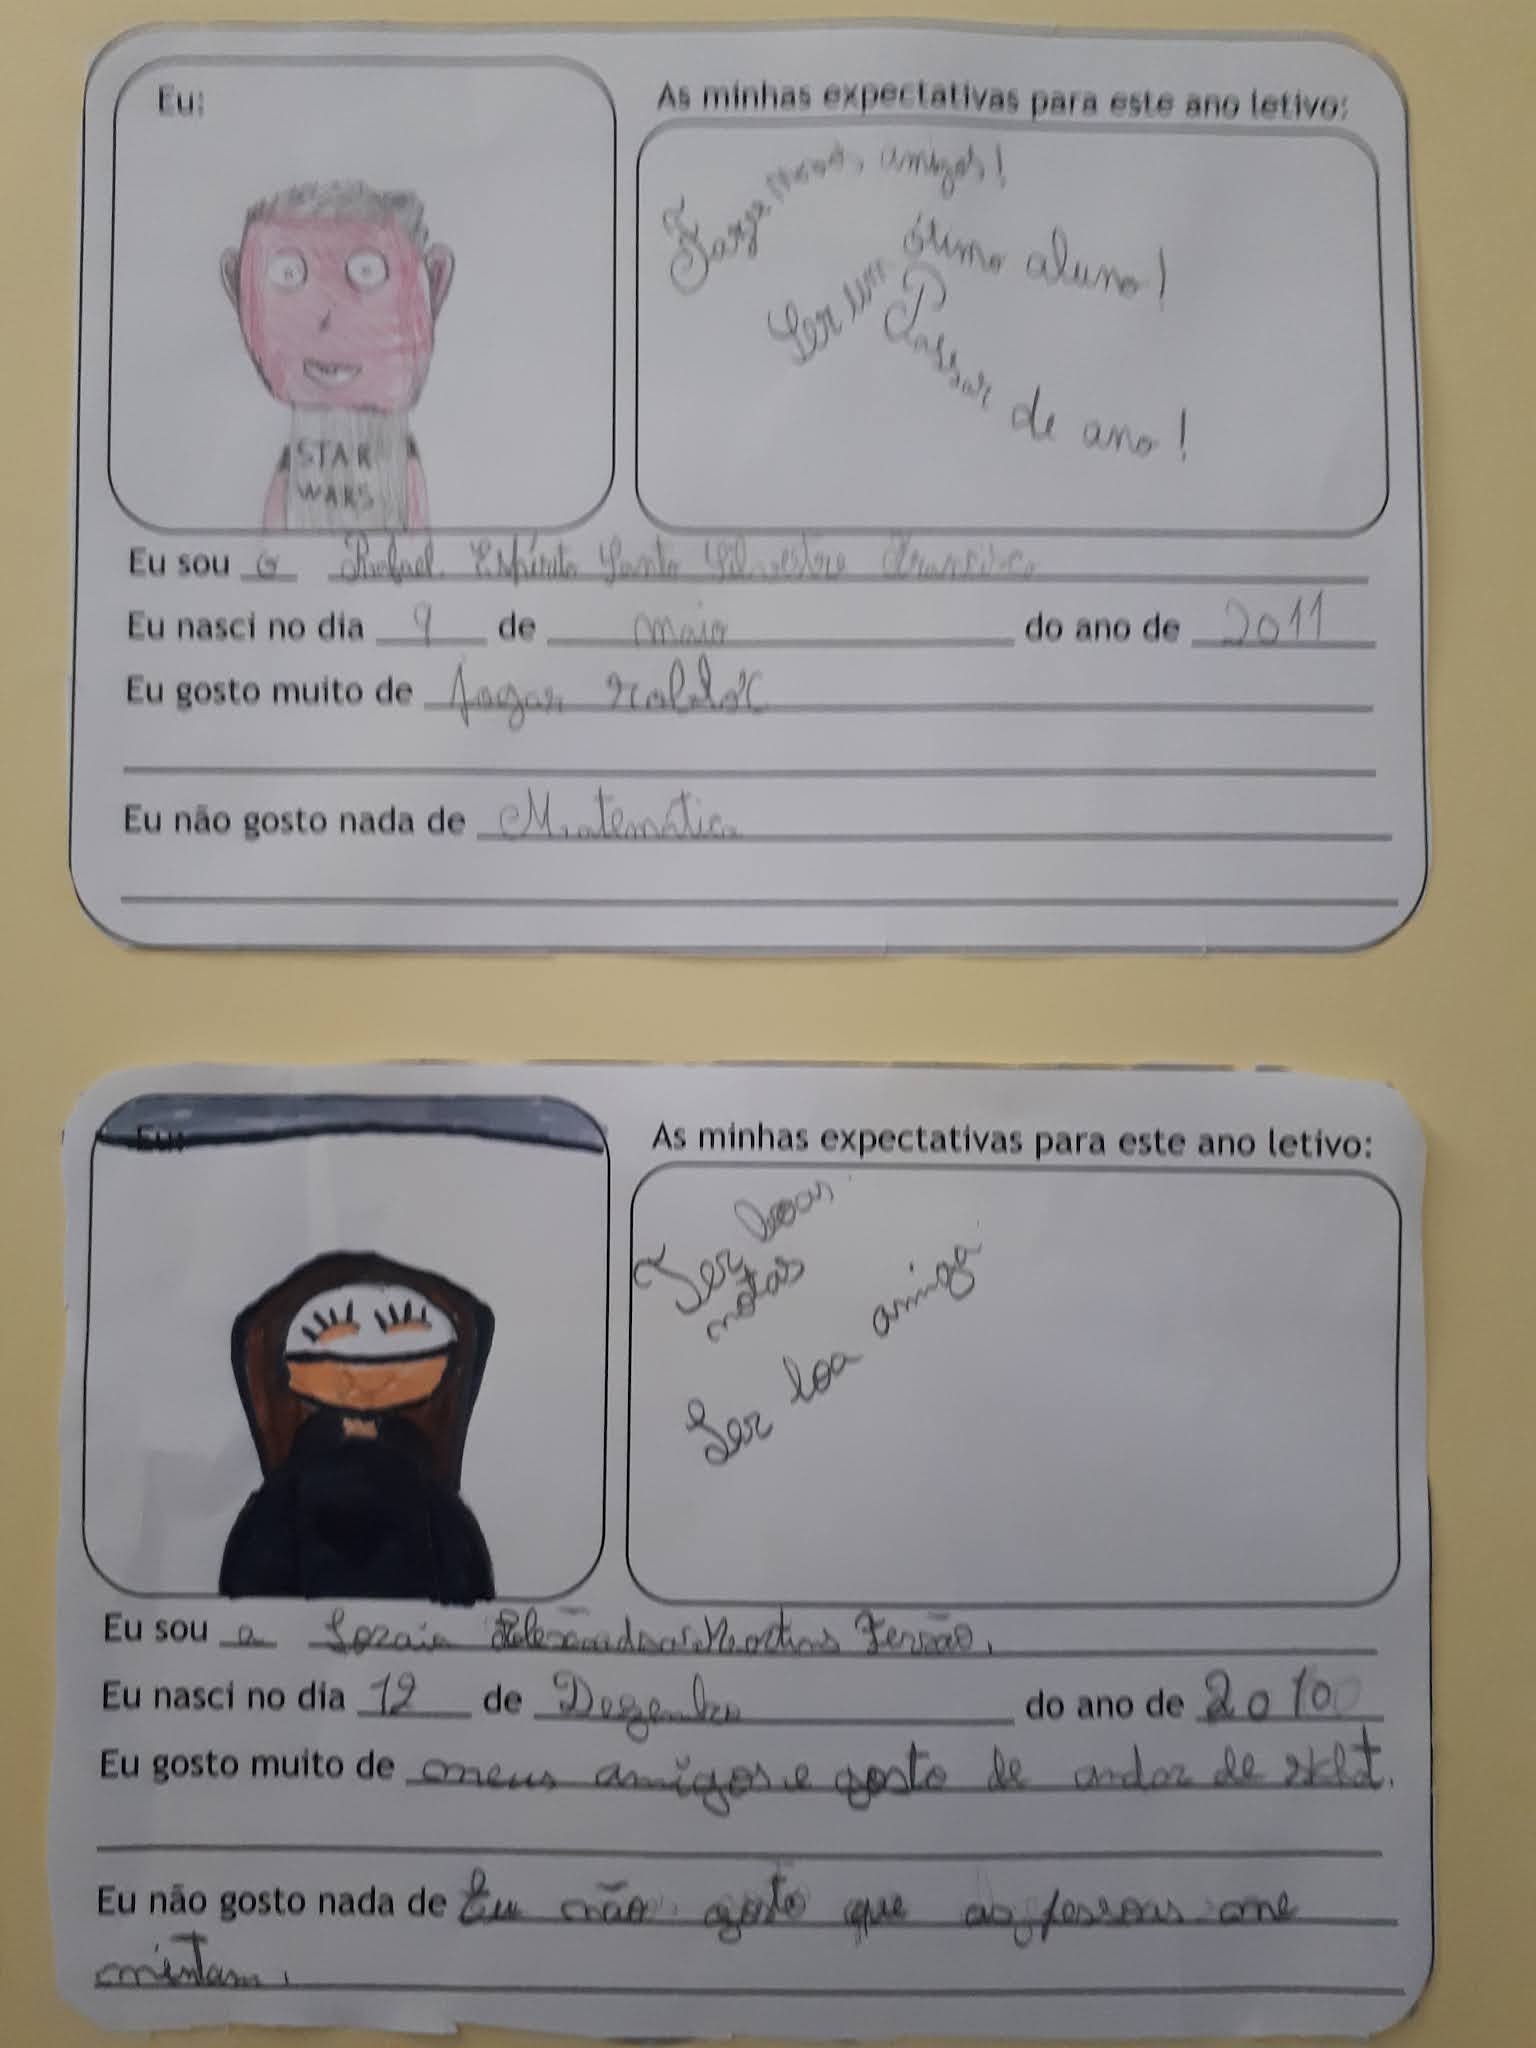 Eu:
STAR
WARS
As minhas expectativas para este ano letivo:
Fazer novos amigos!
Ser um ótimo aluno!
Passar de ano!
Eu sou o Rafael Espírito Santo Silvestre Francisco
Eu nasci no dia 9 de maio do ano de 2011
Eu gosto muito de Jogar roblóx
Eu não gosto nada de Matemática
Eu:
As minhas expectativas para este ano letivo:
Ter boas
notas
Ser boa amiga
Eu sou a Soraia Martins Ferrão.
Eu nasci no dia 12 de Dezembro do ano de 2010
Eu gosto muito de meus amigos e gosto de andar de
Eu não gosto nada de Eu não gosto que as pessoas me
mintam.